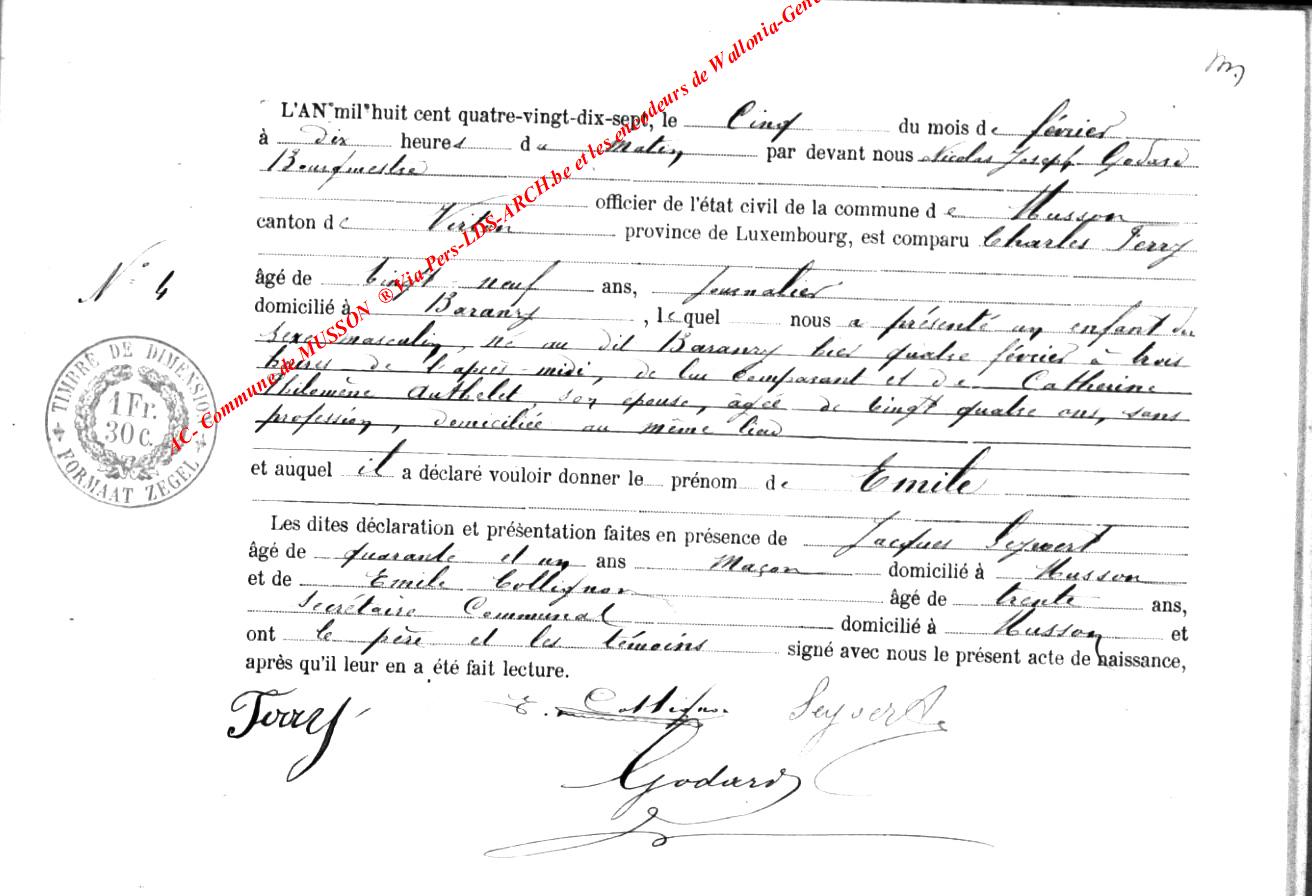 L'AN mil huit cent quatre-vingt-dix-sept, le Cinq du mois de février
à dix heures du Matin par devant nous Nicolas Joseph Godard
Bourgmestre
officier de l'état civil de la commune de Musson
canton de Virton province de Luxembourg, est comparu Charles Terry
N° 4
âgé de vingt neuf ans, journalier
domicilié à Baranzy, lequel nous a présenté un enfant du
sexe masculin, né au dit Baranzy hier quatre février à trois
heures de l'après-midi, de lui comparant et de Catherine
Philomène Authelet, son épouse, âgée de vingt quatre ans, sans
profession, domiciliée au même lieu
et auquel il a déclaré vouloir donner le prénom de Emile
Les dites déclaration et présentation faites en présence de Jacques Seywert
âgé de quarante et un ans Maçon domicilié à Musson
et de Emile Collignon âgé de trente ans,
Secrétaire Communal domicilié à Musson et
ont le père et les témoins signé avec nous le présent acte de naissance,
après qu'il leur en a été fait lecture.
Terry E. Collignon Seywert
Godard
TIMBRE DE DIMENSION
1 Fr.
30 C.
FORMAAT ZEGEL
AC- Commune de MUSSON ® Via Pers-LDS-ARCH.be et les encodeurs de Wallonia-Gene